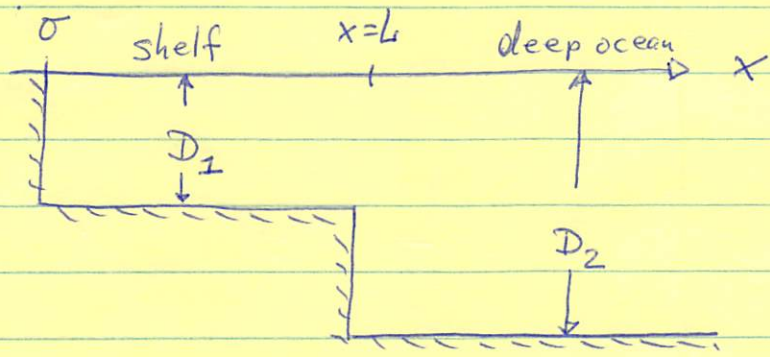 0 shelf x=L deep ocean
x
D1
D2